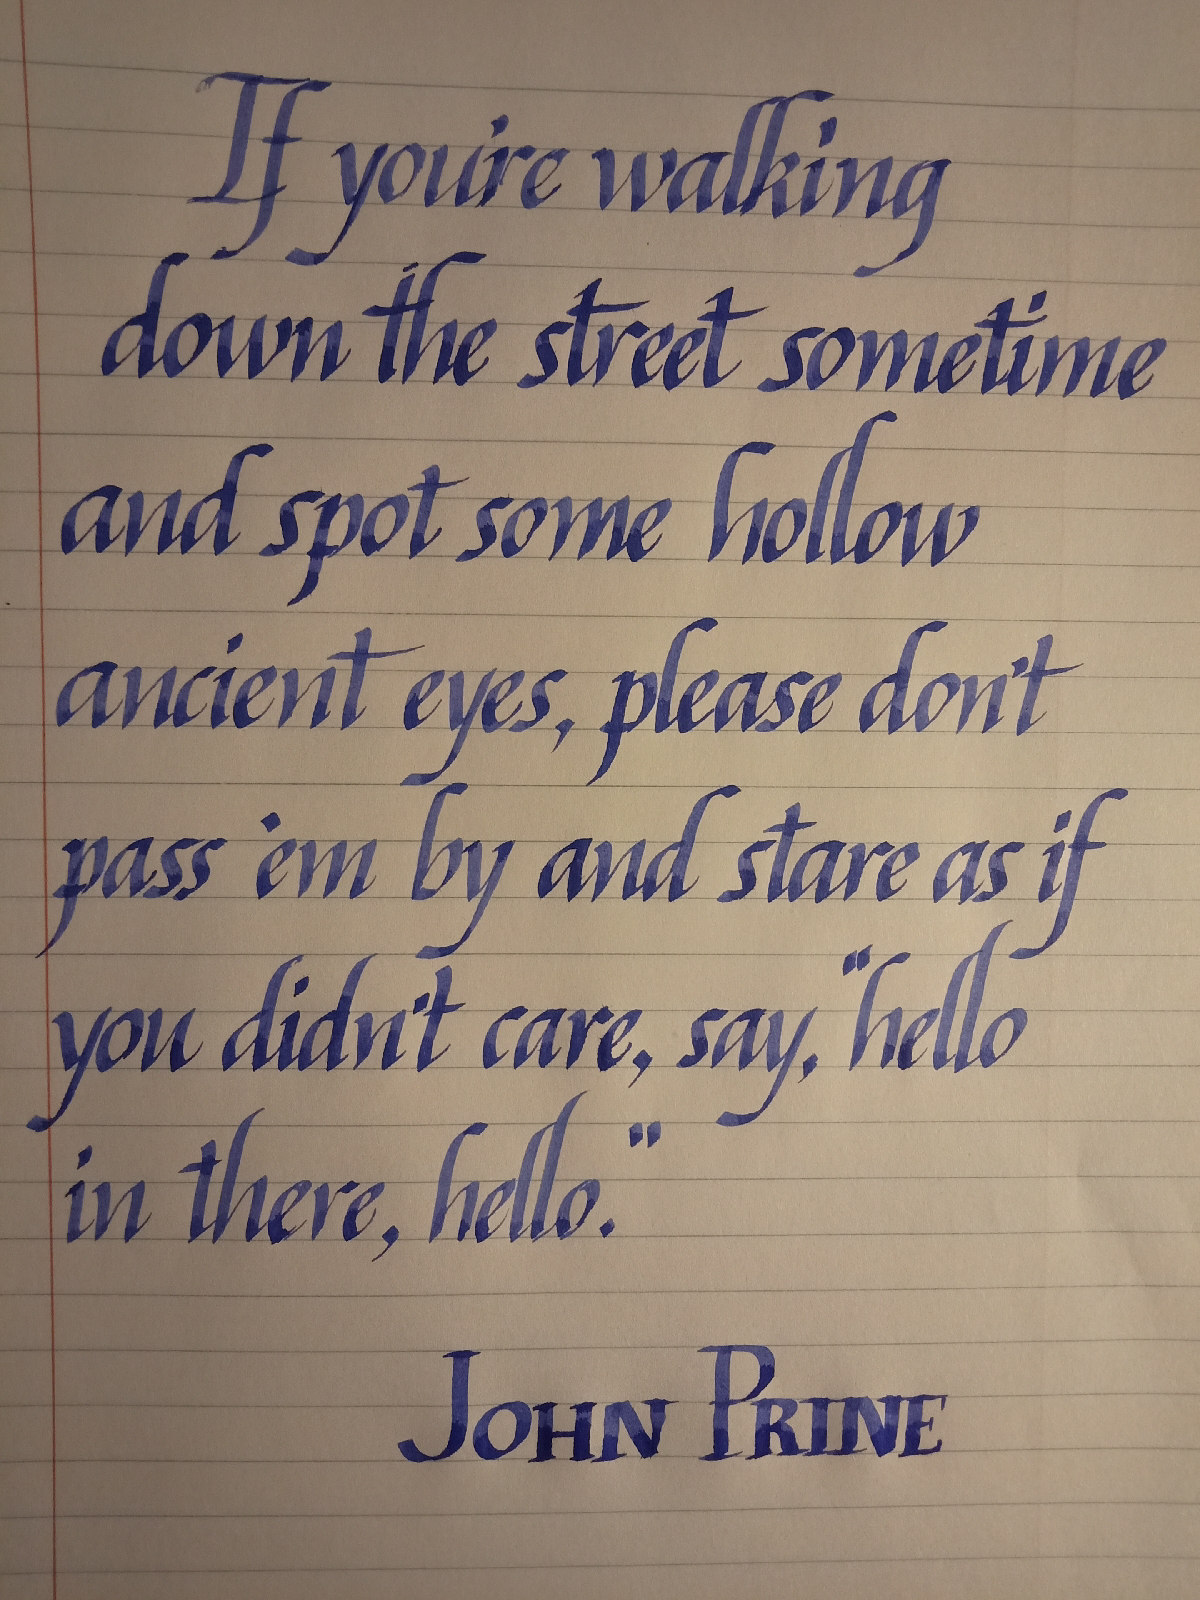 If you're walking
down the street sometime
and spot some hollow
ancient eyes, please don't
pass 'em by and stare as if
you didn't care, say, "hello
in there, hello."
JOHN PRINE